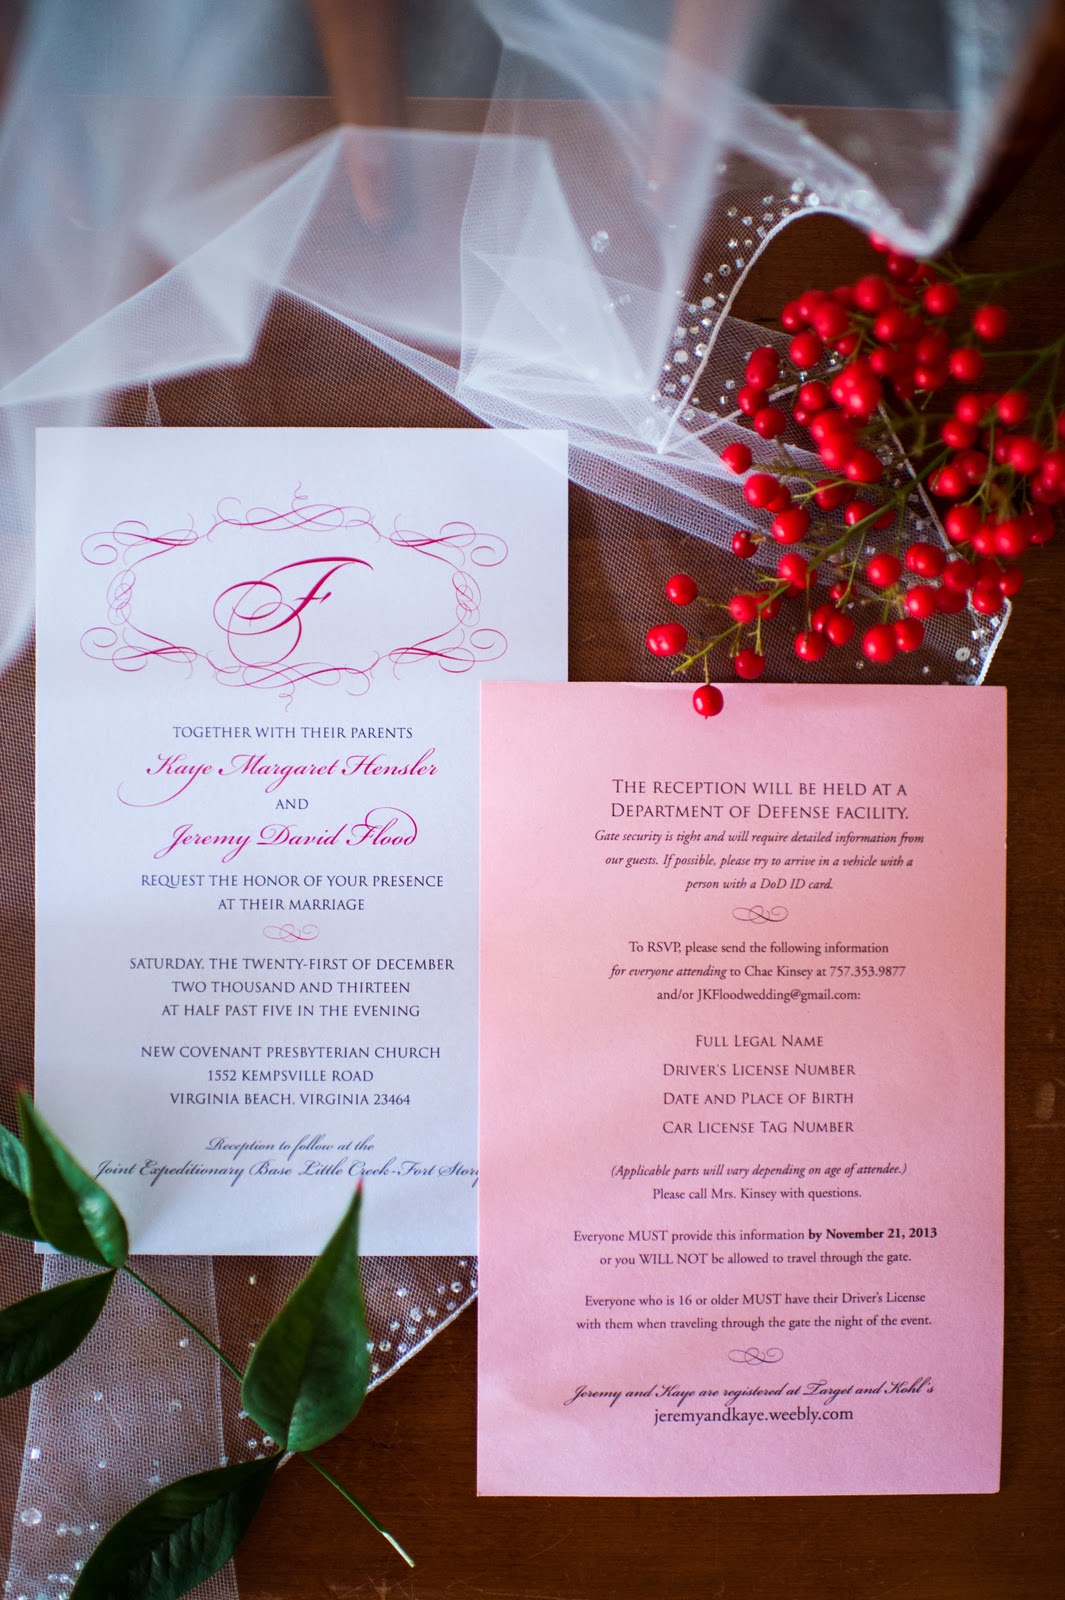 F
TOGETHER WITH THEIR PARENTS
Kaye Margaret Hensler
AND
Jeremy David Flood
REQUEST THE HONOR OF YOUR PRESENCE
AT THEIR MARRIAGE
SATURDAY, THE TWENTY-FIRST OF DECEMBER
TWO THOUSAND AND THIRTEEN
AT HALF PAST FIVE IN THE EVENING
NEW COVENANT PRESBYTERIAN CHURCH
1552 KEMPSVILLE ROAD
VIRGINIA BEACH, VIRGINIA 23464
Reception to follow at the
Joint Expeditionary Base Little Creek-Fort
THE RECEPTION WILL BE HELD AT A
DEPARTMENT OF DEFENSE FACILITY.
Gate security is tight and will require detailed information from
our guests. If possible, please try to arrive in a vehicle with a
person with a DoD ID card.
To RSVP, please send the following information
for everyone attending to Chae Kinsey at 757.353.9877
and/or JKFloodwedding@gmail.com:
FULL LEGAL NAME
DRIVER'S LICENSE NUMBER
DATE AND PLACE OF BIRTH
CAR LICENSE TAG NUMBER
(Applicable parts will vary depending on age of attendee.)
Please call Mrs. Kinsey with questions.
Everyone MUST provide this information by November 21, 2013
or you WILL NOT be allowed to travel through the gate.
Everyone who is 16 or older MUST have their Driver's License
with them when traveling through the gate the night of the event.
Jeremy and Kaye are registered at Target and Kohl's
jeremyandkaye.weebly.com